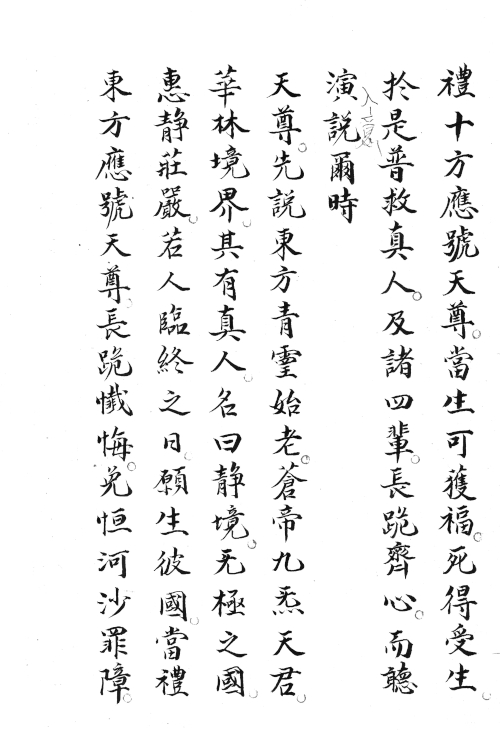 禮十方應號天尊。當生可獲福。死得受生。
扵是普救真人。及諸四輩。長跪齊心。而聽
演說爾時
天尊。先説東方青靈始老。蒼帝九炁天君。
華林境界。其有真人。名曰静境。无極之國。
惠静莊嚴。若人臨終之日。願生彼國。當禮
東方應號天尊。長跪懴悔。免恒河沙罪障。